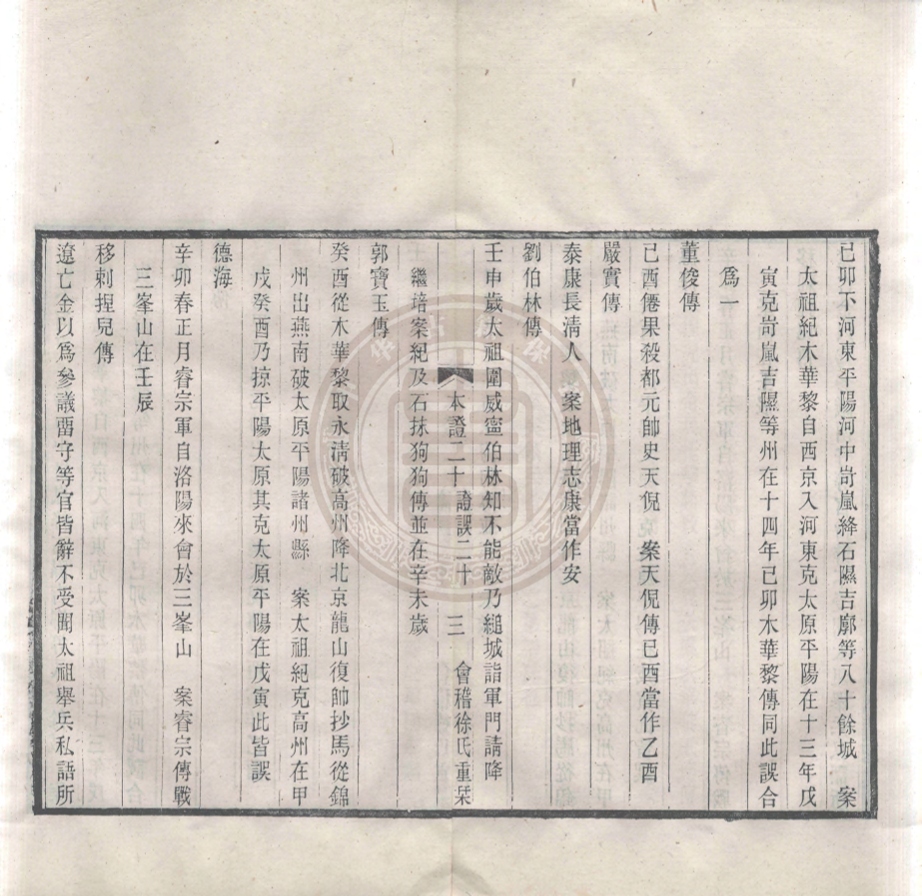 己卯不河東平陽河中岢嵐絳石隰吉廓等八十餘城　案
太祖紀木華黎自西京入河東克太原平陽在十三年戊
寅克岢嵐吉隰等州在十四年己卯木華黎傳同此誤合
爲一
董俊傳
己酉僊果殺都元帥史天倪　案天倪傳己酉當作乙酉
嚴實傳
泰康長淸人　案地理志康當作安
劉伯林傳
壬申歲太祖圍威寧伯林知不能敵乃縋城詣軍門請降
本證二十　證誤二十　三　會稽徐氏重栞
繼培案紀及石抹狗狗傳並在辛未歲
郭寶玉傳
癸酉從木華黎取永淸破高州降北京龍山復帥抄馬從錦
州出燕南破太原平陽諸州縣　案太祖紀克高州在甲
戌癸酉乃掠平陽太原其克太原平陽在戊寅此皆誤
德海
辛卯春正月睿宗軍自洛陽來會於三峯山　案睿宗傳戰
三峯山在壬辰
移剌捏兒傳
遼亡金以爲參議畱守等官皆辭不受聞太祖舉兵私語所